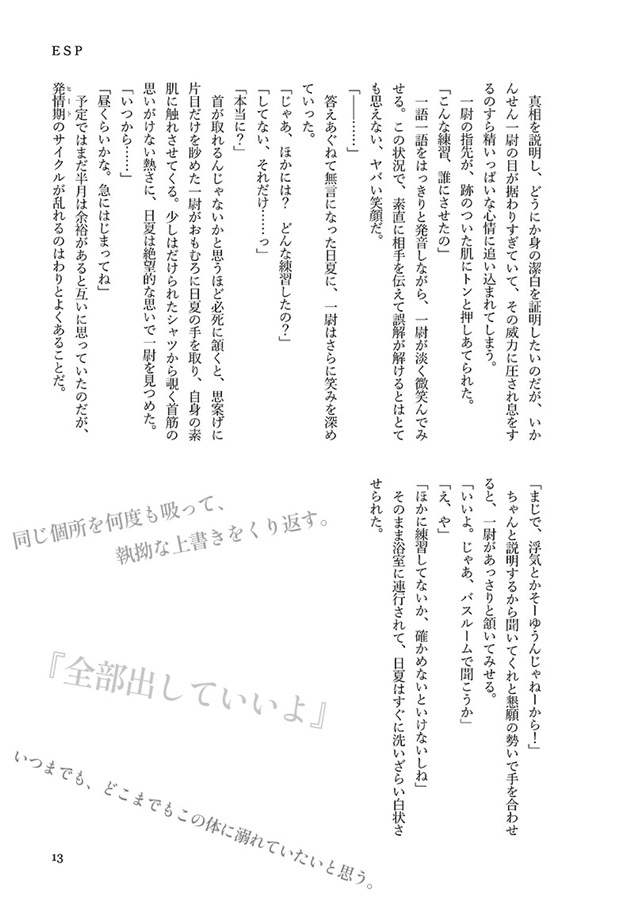 ESP
　真相を説明し、どうにか身の潔白を証明したいのだが、いか
んせん一尉の目が据わりすぎていて、その威力に圧され息をす
るのすら精いっぱいな心情に追い込まれてしまう。
　一尉の指先が、跡のついた肌にトンと押しあてられた。
「こんな練習、誰にさせたの」
　一語一語をはっきりと発音しながら、一尉が淡く微笑んでみ
せる。この状況で、素直に相手を伝えて誤解が解けるとはとて
も思えない、ヤバい笑顔だ。
「――……」
　答えあぐねて無言になった日夏に、一尉はさらに笑みを深め
ていった。
「じゃあ、ほかには？　どんな練習したの？」
「してない、それだけ……っ」
「本当に？」
　首が取れるんじゃないかと思うほど必死に頷くと、思案げに
片目だけを眇めた一尉がおもむろに日夏の手を取り、自身の素
肌に触れさせてくる。少しはだけられたシャツから覗く首筋の
思いがけない熱さに、日夏は絶望的な思いで一尉を見つめた。
「いつから……」
「昼くらいかな。急にはじまってね」
　予定ではまだ半月は余裕があると互いに思っていたのだが、
発情期のサイクルが乱れるのはわりとよくあることだ。
ヒート
「まじで、浮気とかそーゆうんじゃねーから！」
　ちゃんと説明するから聞いてくれと懇願の勢いで手を合わせ
ると、一尉があっさりと頷いてみせる。
「いいよ。じゃあ、バスルームで聞こうか」
「え、や」
「ほかに練習してないか、確かめないといけないしね」
　そのまま浴室に連行されて、日夏はすぐに洗いざらい白状さ
せられた。
同じ個所を何度も吸って、
執拗な上書きをくり返す。
『全部出していいよ』
いつまでも、どこまでもこの体に溺れていたいと思う。
13